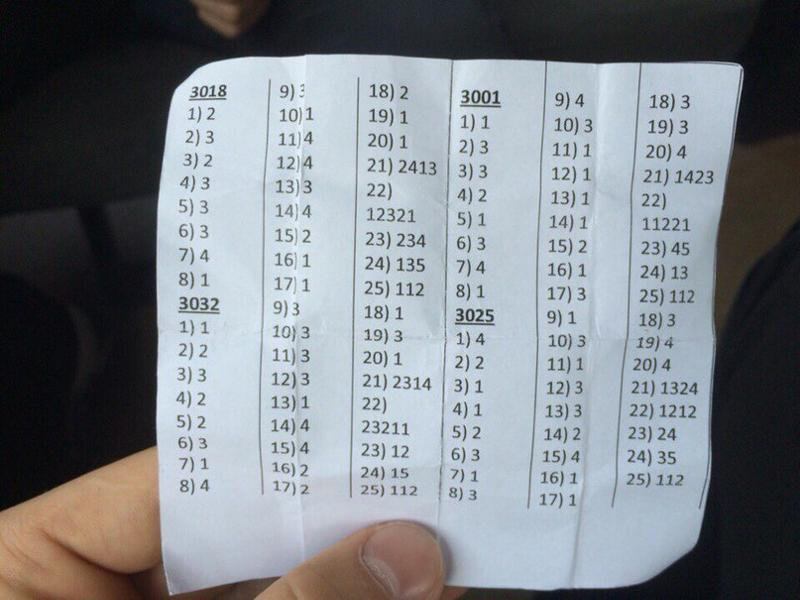 3018
1) 2
2) 3
3) 2
4) 3
5) 3
6) 3
7) 4
8) 1
9) 3
10) 1
11) 4
12) 4
13) 3
14) 4
15) 2
16) 1
17) 1
18) 2
19) 1
20) 1
21) 2413
22)
12321
23) 234
24) 135
25) 112
3001
1) 1
2) 3
3) 3
4) 2
5) 1
6) 3
7) 4
8) 1
9) 4
10) 3
11) 1
12) 1
13) 1
14) 1
15) 2
16) 1
17) 3
18) 3
19) 3
20) 4
21) 1423
22)
11221
23) 45
24) 13
25) 112
3032
1) 1
2) 2
3) 3
4) 2
5) 2
6) 3
7) 1
8) 4
9) 3
10) 3
11) 3
12) 3
13) 1
14) 4
15) 4
16) 2
17) 2
18) 1
19) 3
20) 1
21) 2314
22)
23211
23) 12
24) 15
25) 112
3025
1) 4
2) 2
3) 1
4) 1
5) 2
6) 3
7) 1
8) 3
9) 1
10) 3
11) 1
12) 3
13) 3
14) 2
15) 4
16) 1
17) 1
18) 3
19) 4
20) 4
21) 1324
22) 1212
23) 24
24) 35
25) 112